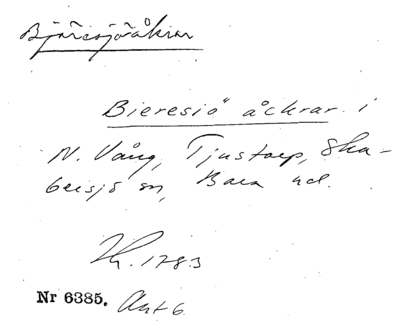 Bjäresjöåkrar
Bieresiö åckrar i
N. Vång, Tjustorp, Ska-
bersjö sn, Bara hd.
1783
Nr 6385. Akt 6